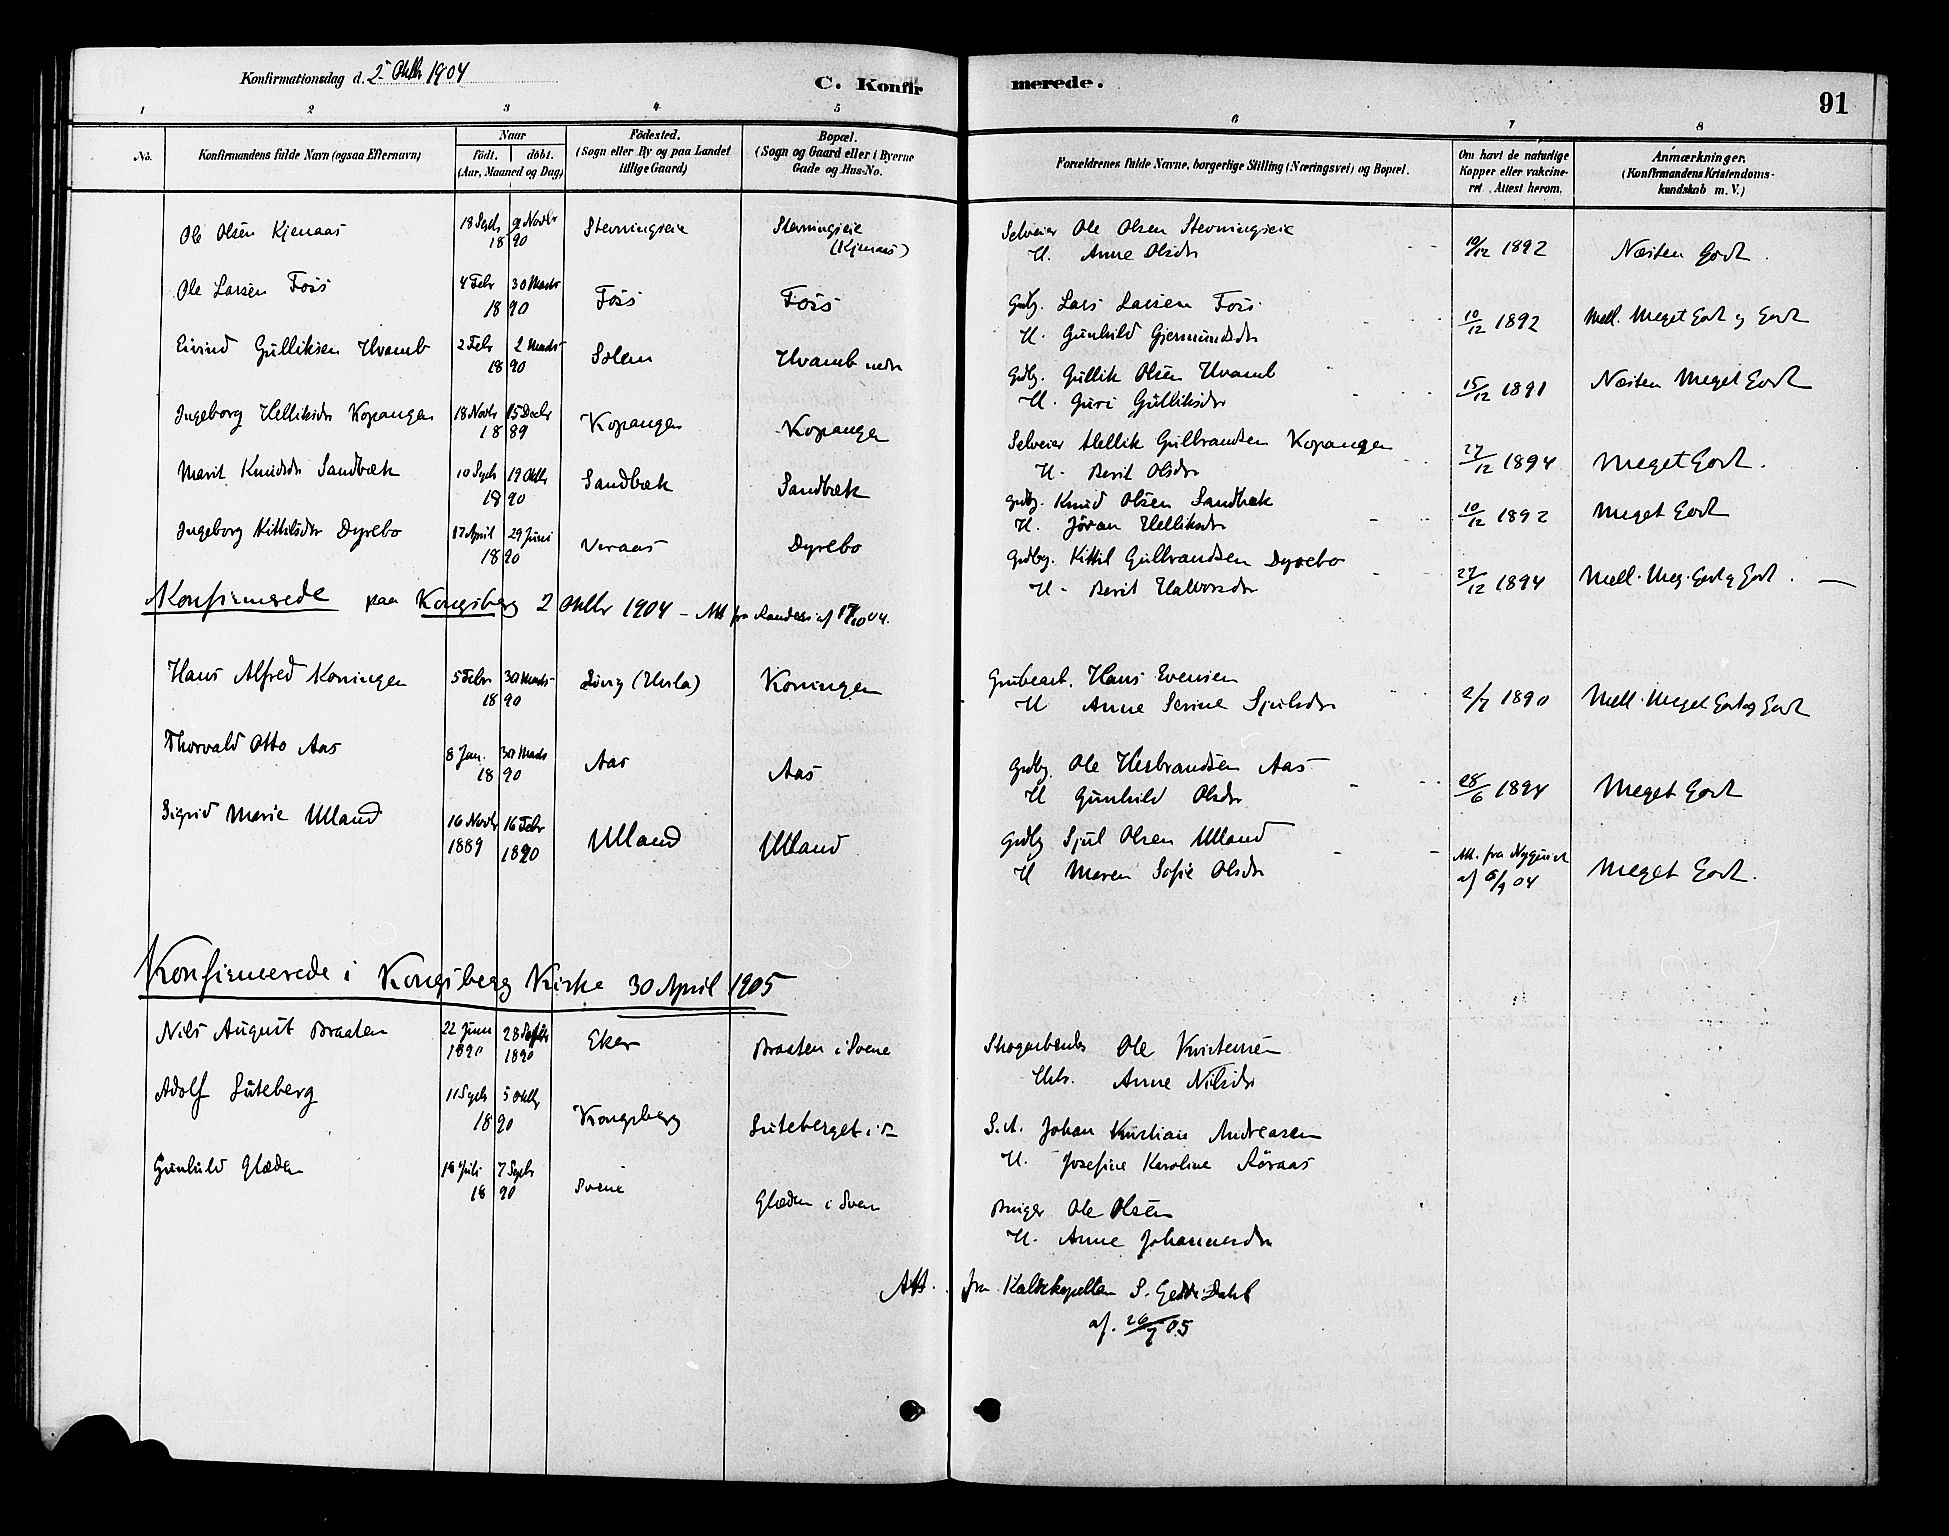 Konfirmationsdag d. 2 Oktbr 1904
C. Konfirmerede.
91
1 2 3 4 5 6 7 8
No.
Konfirmandens fulde Navn (ogsaa Efternavn)
Naar
födt. döbt.
(Aar, Maaned og Dag)
Födested.
(Sogn eller By og paa Landet
tillige Gaard)
Bopæl.
(Sogn og Gaard eller i Byerne
Gade og Hus-No.
Forældrenes fulde Navne, borgerlige Stilling (Næringsvei) og Bopæl.
Om havt de naturlige
Kopper eller vakcine-
ret. Attest herom.
Anmærkninger.
(Konfirmandens Kristendoms-
kundskab m. V.)
Ole Olsen Kjenaas 18 Septr 9 Novbr 1890 Stevningseie Stevningseie (Kjenaas) Selveier Ole Olsen Stevningseie 10/12 1892 Næsten Godt.
H. Anne Olsdr
Ole Larsen Foss 4 Febr 30 Marts 1890 Foss Foss Grdbg. Lars Larsen Foss 10/12 1892 Mell. Meget Godt og Godt
H. Gunhild Gjermundsdr
Eivind Gulliksen Hvamb 2 Febr 2 Marts 1890 Solem Hvamb nedr Grdbg. Gullik Olsen Hvamb 15/12 1891 Næsten Meget Godt
H. Guri Gulliksdr
Ingeborg Helliksdr Kopangen 18 Novbr 15 Decbr 1889 Kopangen Kopangen Selveier Hellik Gulbrandsen Kopangen 27/12 1894 Meget Godt.
H. Berit Olsdr
Marit Knudsdr Sandbæk 10 Septr 19 Oktbr 1890 Sandbæk Sandbæk Grdbg. Knud Olsen Sandbæk 10/12 1892 Meget Godt
H. Jöran Helliksdr
Ingeborg Kittilsdr Dyrebo 17 April 29 Juni 1890 Veraas Dyrebo Grdbg. Kittil Gulbrandsen Dyrebo 27/12 1894 Mell. Meg. Godt og Godt.
H. Berit Halvorsdr
Konfirmerede paa Kongsberg 2 Oktbr 1904 - Att fra af 17/10 04.
Hans Alfred Koningen 5 Febr 30 Marts 1890 Koningen Grubearb. Hans Evensen 2/7 1890 Mell. Meget Godt og Godt
H Anne Serine Sjulsdr
Thorvald Otto Aas 8 Jan. 30 Marts 1890 Aas Aas Grdbg. Ole Herbrandsen Aas 28/6 1894 Meget Godt
H Gunhild Olsdr
Sigrid Marie Ulland 16 Novbr 1889 16 Febr 1890 Ulland Ulland Grdbg Sjul Olsen Ulland Att. fra Nyquist af 6/9 04 Meget Godt.
H Maren Sofie Olsdr
Konfirmerede i Kongsberg Kirke 30 April 1905
Nils August Braaten 22 Juni 1890 28 Septbr 1890 Eker Braaten i Svene Skogarbeider Ole Kristensen
Anne Nilsdr
Adolf Luteberg 11 Septr 5 Oktbr 1890 Kongsberg Luteberget i S. A. Johan Kristian Andreasen
H. Josefine Karoline Röraas
Gunhild Glæden 18 Juli 7 Septr 1890 Svene Glæden i Sven Bruger Ole Olsen
H. Anne Johannesdr
Att. fra Kaldskapellan S. Gedde Dahl
af. 26/7 05